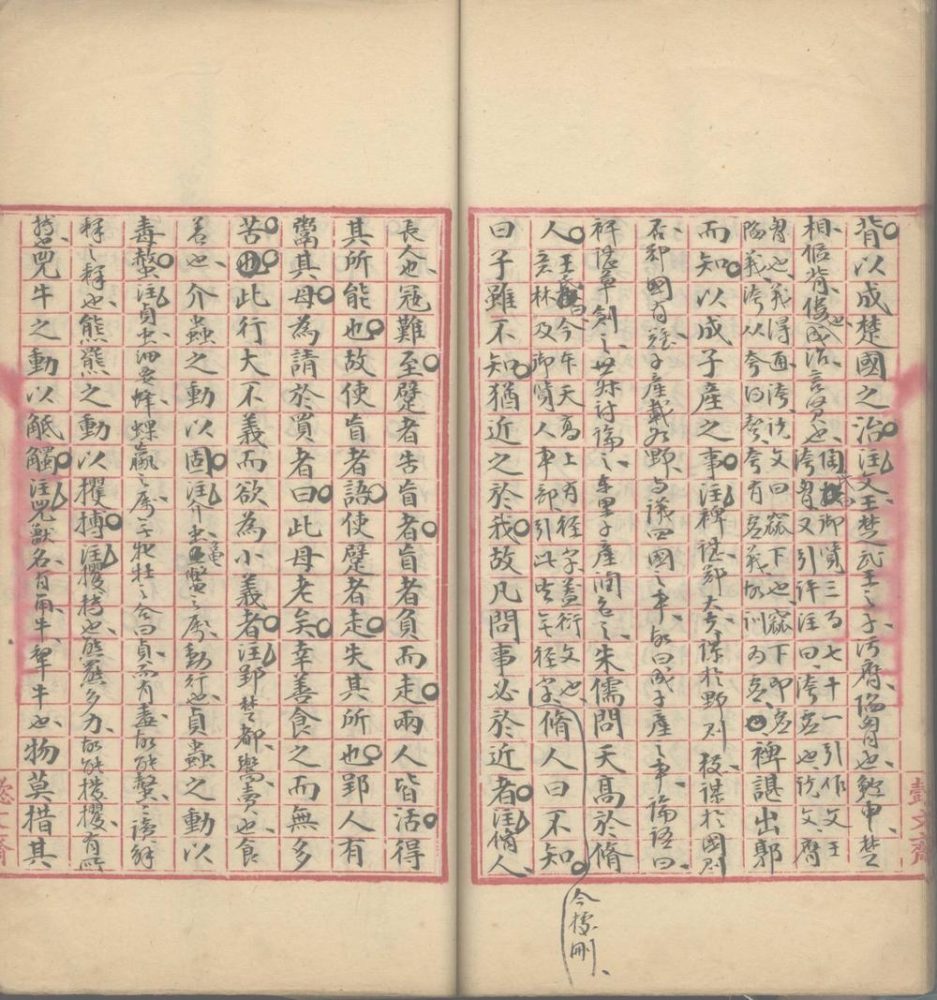 背以成楚國之治注文王楚武王之子污膺傴背也鮑申楚
相傴背僂也成治言賢也御覽三百七十一引作文王
洿胷又引許注曰洿也說文膺
胷也義得通洿說文曰窳下也窳下即
陷義洿从夸得聲夸有義故訓為裨諶出郭
而知以成子產之事注裨諶鄭大夫謀於野則獲謀於國則
否鄭國有難子產載如野與議四國之事故曰成子產之事論語曰
裨諶草創之世叔討論之東里子產潤色之朱儒問天高於脩
人王今本天高上有徑字蓋衍文也
意林及御覽人事部引此皆無徑字脩人曰不知
今據刪
曰子雖不知猶近之於我故凡問事必於近者注脩人
長人也寇難至躄者告盲者盲者負而走兩人皆活得
其所能也故使盲者語使躄者走失其所也郢人有
鬻其母為請於買者曰此母老矣幸善食之而無多
苦此行大不義而欲為小義者注郢楚都鬻賣也食
養也介蟲之動以固注介虫龜鼈之屬動行也貞蟲之動以
毒螫注貞虫細要蜂蜾蠃之屬無牝牡之合曰貞而有毒故能螫螫讀解
釋之釋也熊羆之動以攫搏注攫搏也熊羆多力故能攫有所
搏也兕牛之動以觝觸注兕獸名有角牛犀牛也物莫措其
懿文齋